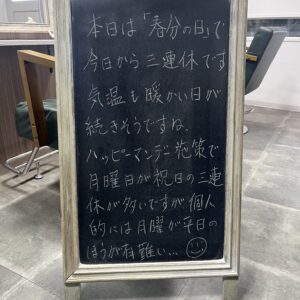 本日は「春分の日」で
今日から三連休です
気温も暖かい日が
続きそうですね.
ハッピーマンデー施策で
月曜日が祝日の三連
休が多いですが、個人
的には月曜が平日の
ほうが有難い…